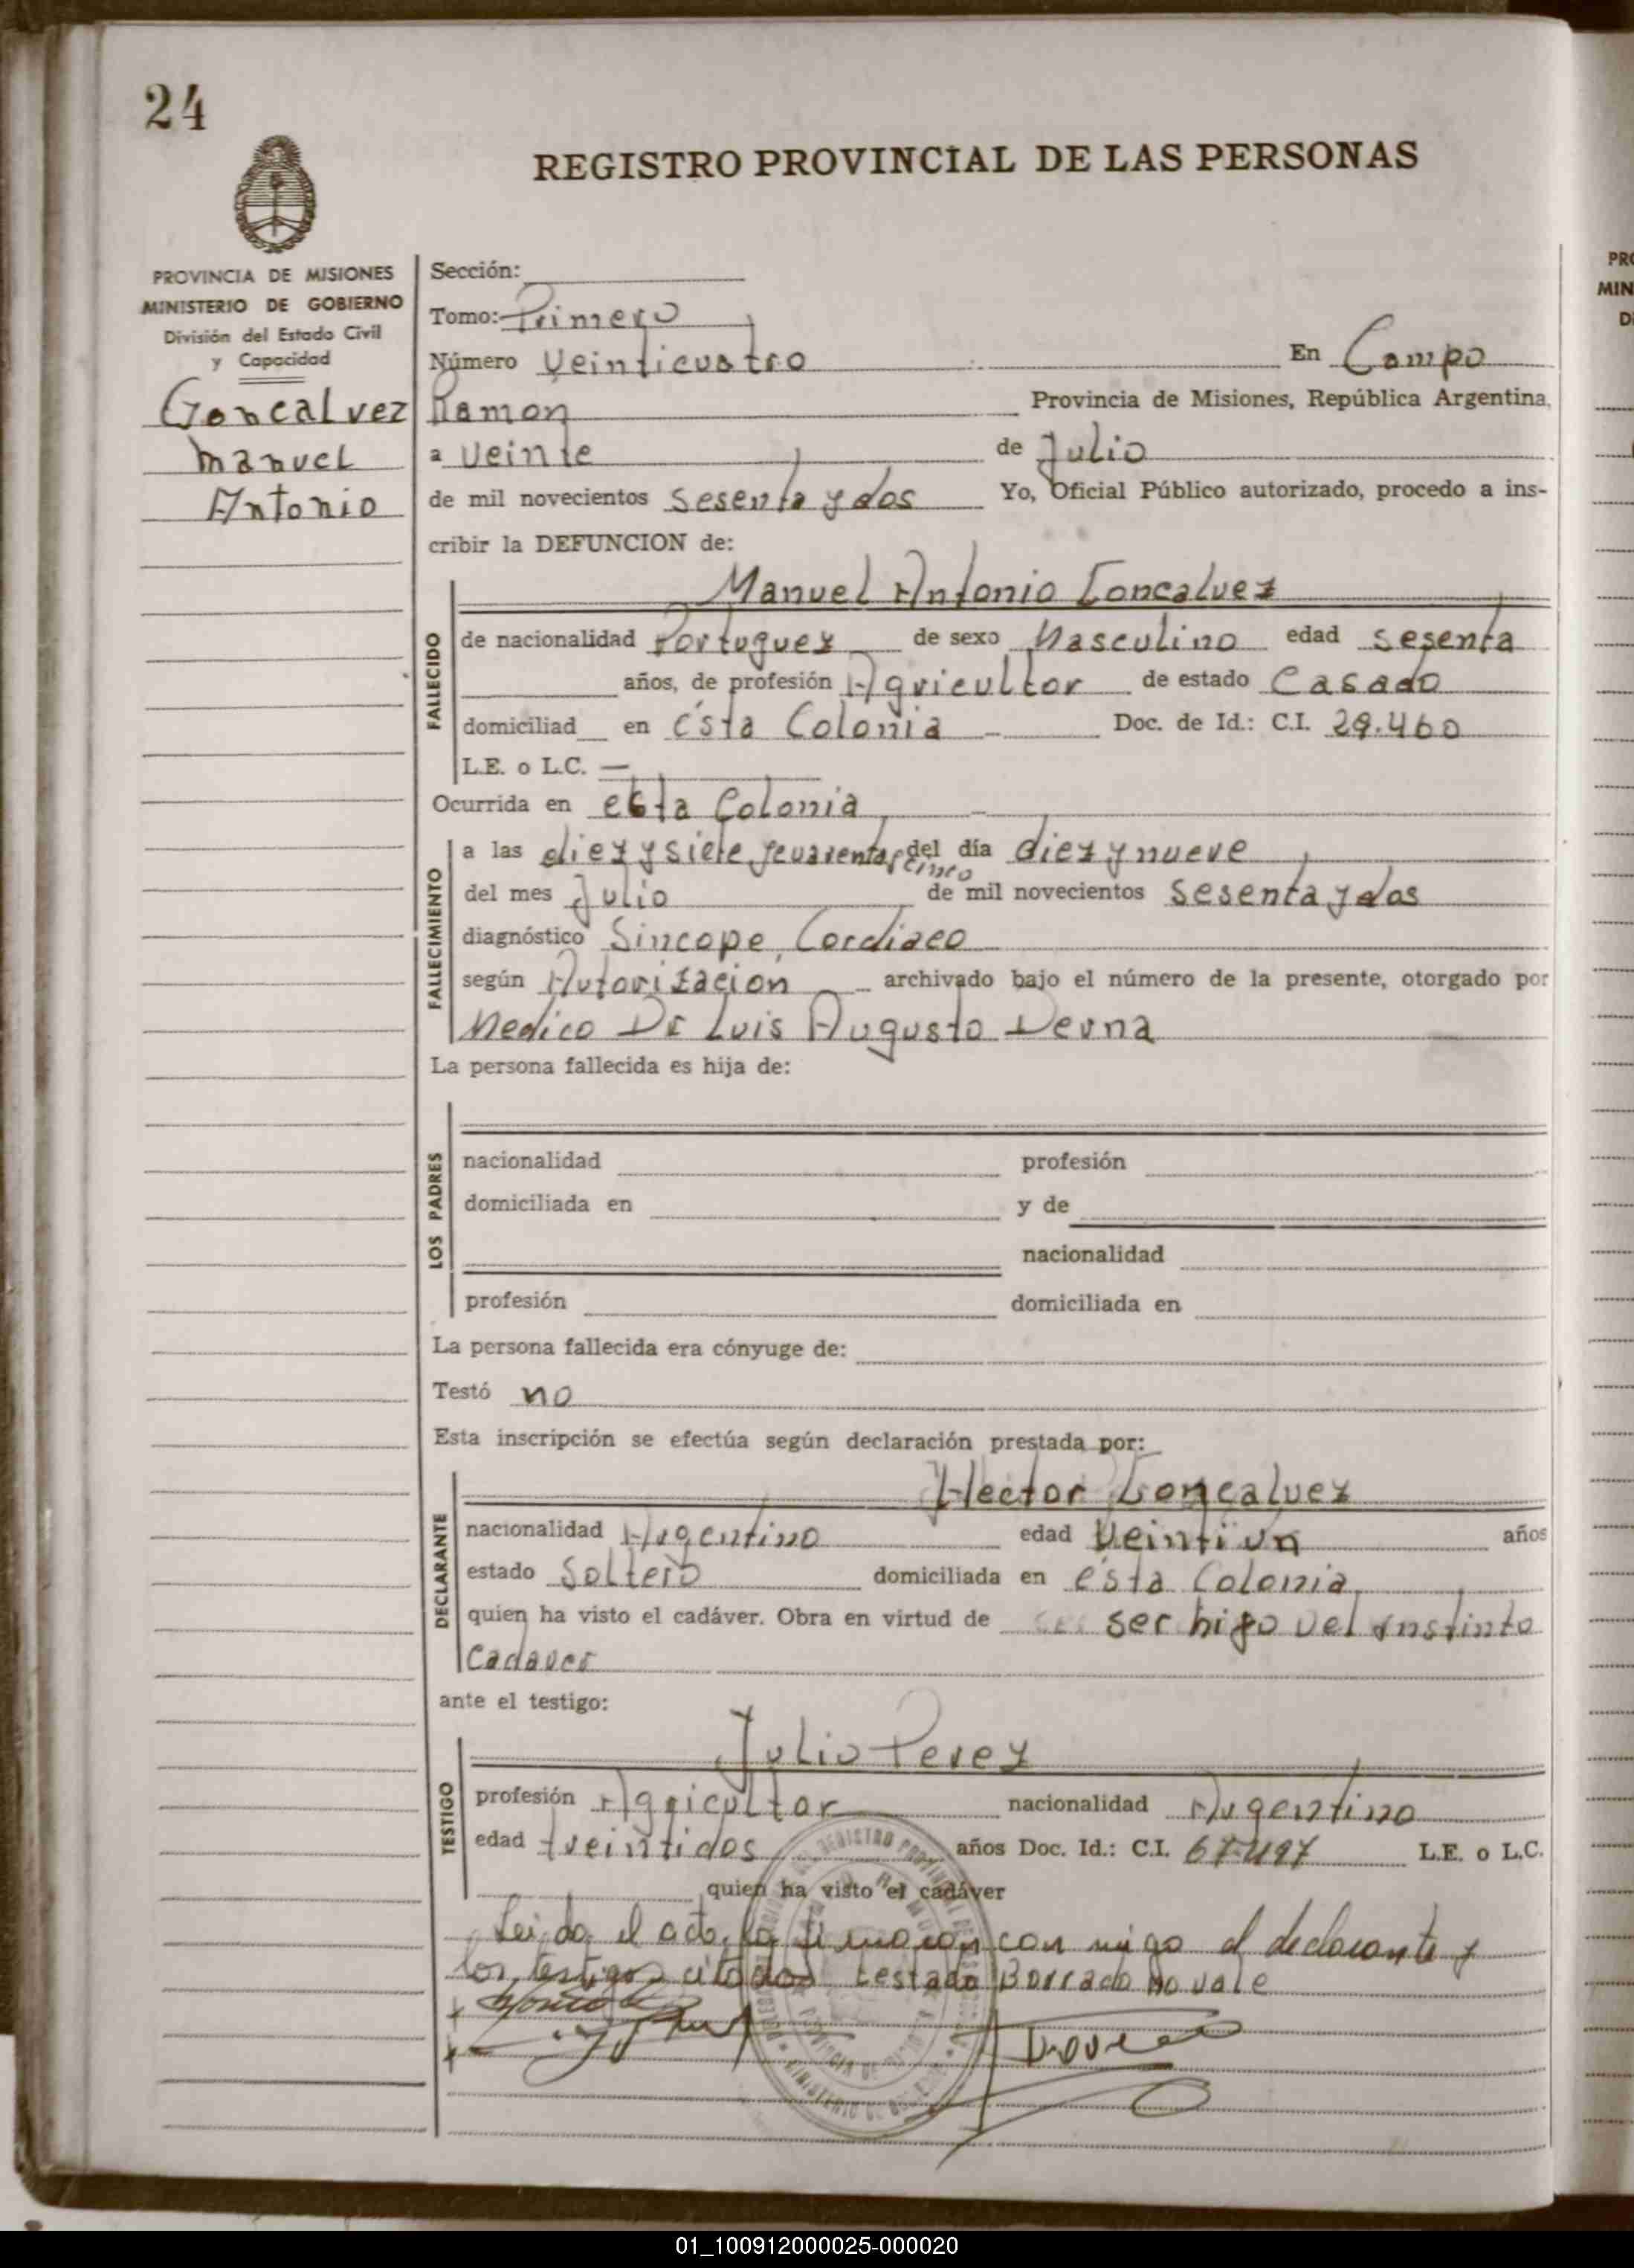 24
REGISTRO PROVINCIAL DE LAS PERSONAS
PROVINCIA DE MISIONES
MINISTERIO DE GOBIERNO
División del Estado Civil
y Capacidad
Goncalvez
Manuel
Antonio
Sección:
Tomo: Primero
Número Veinticuatro En Campo
Ramon Provincia de Misiones, República Argentina,
a Veinte de Julio
de mil novecientos Sesenta y dos Yo, Oficial Público autorizado, procedo a ins-
cribir la DEFUNCION de:
Manuel Antonio Goncalvez
FALLECIDO
de nacionalidad Portuguez de sexo Masculino edad sesenta
años, de profesión Agricultor de estado Casado
domiciliad en ésta Colonia Doc. de Id.: C.I. 29.460
L.E. o L.C. —
Ocurrida en esta Colonia
FALLECIMIENTO
a las diez y siete, y cuarenta y cinco del día diez y nueve
del mes Julio de mil novecientos Sesenta y dos
diagnóstico Sincope Cordiaco
según Autorizacion archivado bajo el número de la presente, otorgado por
Medico Dr Luis Augusto Derna
La persona fallecida es hija de:
LOS PADRES
nacionalidad profesión
domiciliada en y de
nacionalidad
profesión domiciliada en
La persona fallecida era cónyuge de:
Testó no
Esta inscripción se efectúa según declaración prestada por:
Hector Goncalvez
DECLARANTE
nacionalidad Argentino edad Veintiun años
estado Soltero domiciliada en ésta Colonia
quien ha visto el cadáver. Obra en virtud de ser hijo del instinto
Cadaver
ante el testigo:
Julio Perez
TESTIGO
profesión Agricultor nacionalidad Argentino
edad treintidos años Doc. Id.: C.I. L.E. o L.C.
quien ha visto el cadáver
Leida el acta, la firmaron con migo el declarante y
los testigos citados testado Borrado no vale
PRO
MIN
01_100912000025-000020